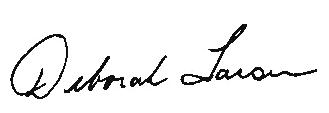 Deborah Larson